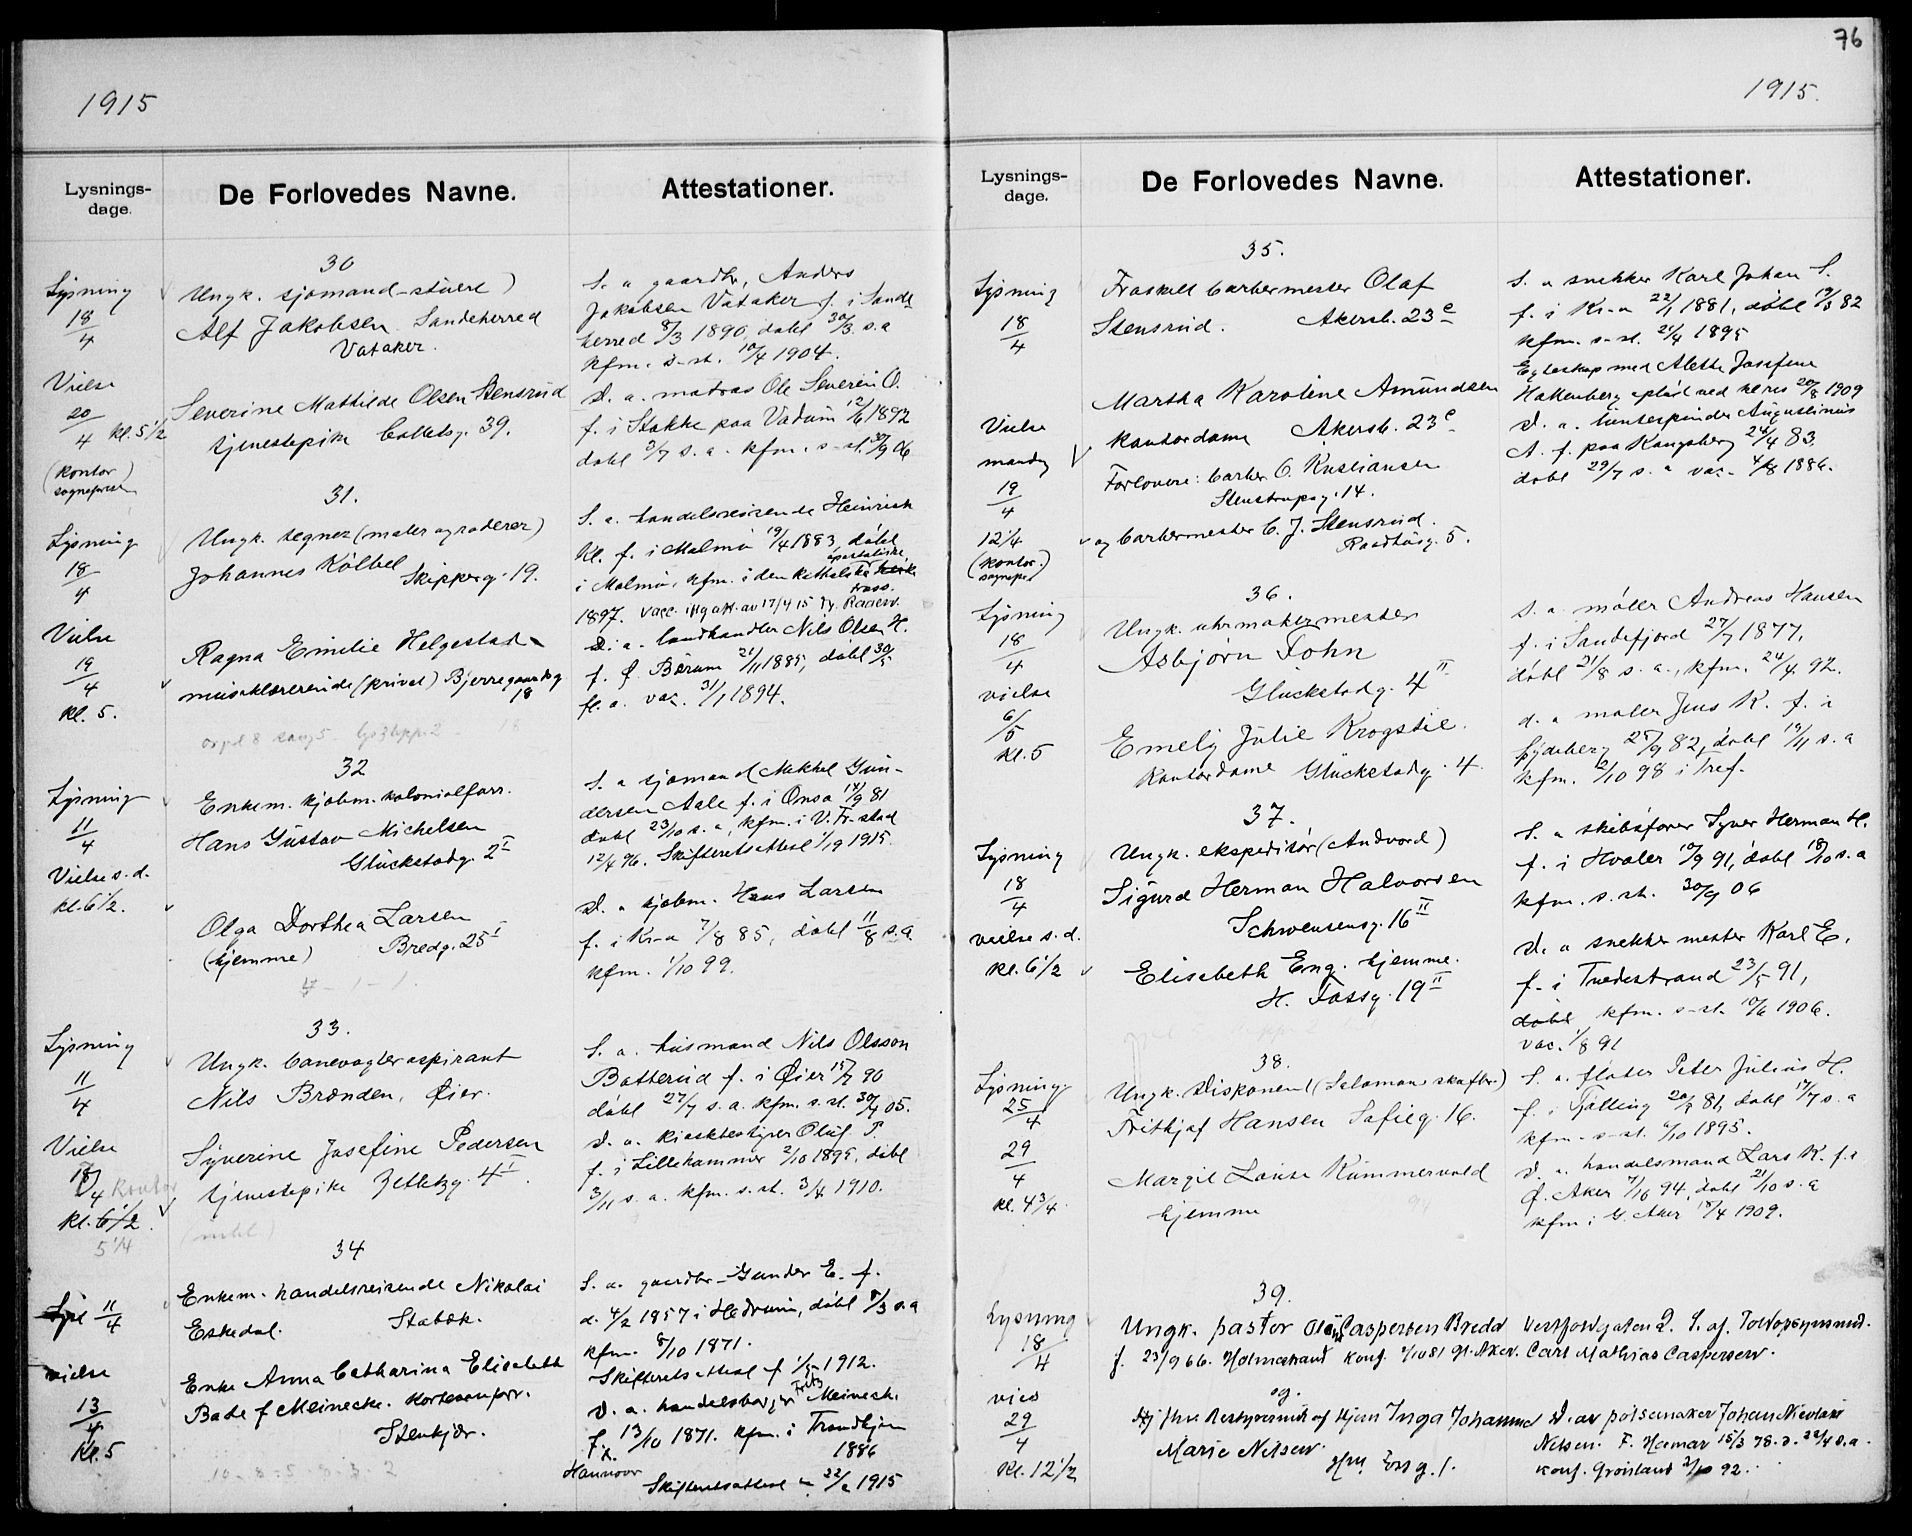 76
1915
Lysnings-
dage.
De Forlovedes Navne.
Attestationer.
30
Lysning
18/4
Ungk. sjømand-stuert)
Alf Jakobsen Sandeherred
Vataker.
S. a gaardbr, Anders
Jakobsen Vataker f. i Sande
herred 8/3 1890, døbt 30/3 s.a
kfm. s-st. 10/4 1904.
Vielse
20/4 kl. 5 1/2
(kontor)
Severine Mathilde Olsen Stensrud
tjenestepike Colletsg. 39.
D. a. matros Ole Severin O.
f. i Stokke paa Vadum 12/6 1892
døbt 3/7 s. a. kfm. s-st. 30/9 06
31.
Lysning
18/4
Ungk. tegner (maler og raderer)
Johannes Kölbel Skipperg. 19.
S. a. handelsreisende Heinrich
Kl. f. i Malmø 19/4 1883, døbt
i Malmø, kfm. i den katholsk apostoliske
1897. vacc.
Vielse
19/4
kl. 5.
Ragna Emilie Helgestad
musiklærerinde (privat) Bjerregaardsg
18
D. a. landhandler Nils Olsen H.
f. Ø. Bærum 21/11 1885, døbt
fl. a. vac. 31/7 1894.
32
Lysning
11/4
Enkem. kjøbm. kolonialforr.
Hans Gustav Michelsen
Glückstadg. 2 I
S. a sjømand Mikkel Gun-
dersen Aale f. i Onsø 14/9 81
døbt 23/10 s. a, kfm. i V. Fr-stad
12/4 96. Skifteretsattest 1/9 1915.
Vielse s. d.
kl. 6 1/2.
Olga Dorthea Larsen
(hjemme) Bredg. 25 I
D. a kjøbm. Hans Larsen
f. i Kr-a 7/8 85, døbt 11/8 s. a
kfm. 1/10 99.
33.
Lysning
11/4
Ungk. banevogteraspirant
Nils Brænden, Øier.
S. a. husmand Nils Olsson
Batterud f. i Øier 15/7 90
døbt 27/7 s. a. kfm. s. st. 30/4 05.
Vielse
18/4 kontor
kl. 6 1/2
5 1/4
Syverine Josefine Pedersen
tjenestepike Zetlitzg. 4 I
D. a. kioskbestyrer Oluf P.
f. i Lillehammer 2/10 1895, døbt
3/11 s. a. kfm. s. st. 3/4 1910.
34
11/4
Enkem. handelsreisende Nikolai
Eskedal. Stabæk.
S. a. gaardbr Gunder E. f.
d. 4/2 1857 i Hedrum, døbt 8/3 s. a
kfm. 8/10 1871.
Skifteretsattest f 1/5 1912.
vielse
13/4
Kl. 5
Enke Anna Catharina Elisabeth
Bade f Meinecke. Kortevareforr.
Stenkjær.
D. a. handelsborger Fritz Meineck.
f. 13/10 1871. kfm. i Trondhjem
i Hannover 1886
Skifteretsattest 22/2 1915
1915.
Lysnings-
dage.
De Forlovedes Navne.
Attestationer.
35.
Lysning
18/4
Fraskilt barbermester Olaf
Stensrud. Akersb. 23 c
S. a snekker Karl Johan S.
f. i Kr-a 22/1 1881, døbt 19/3 82
kfm. s-st. 21/4 1895
Egteskap med Alette Josefine
Hattenberg opløst ved kl res 20/8 1909
Vielse
mandag
19/4
12 1/4
(kontor.)
Martha Karoline Amundsen
kontordame Akersb. 23 c
Forlovere: barber O. Kristiansen
Stenstrupsg. 14.
og barbermester C. J. Stensrud.
Raadhusg. 5.
D. a. luntespinder Augustinius
A. f. paa Kongsberg 24/4 83.
døbt 29/7 s. a vac. 4/8 1886.
36.
Lysning
18/4
Ungk. uhrmakermester
Asbjørn Fohn
Glückstadg. 4 II
S. a. møller Andreas Hansen
f. i Sandefjord 27/7 1877,
døbt 31/8 s. a., kfm. 24/4 92.
vielse
6/5
kl. 5
Emely Julie Krogstie.
Kontordame Glückstadg. 4
d. a maler Jens K. f. i
Spydeberg 25/9 82, døbt 19/11 s. a
kfm. 2/10 98 i Tref.
37.
Lysning
18/4
Ungk. ekspeditør (Andvord)
Sigurd Herman Halvorsen
Schwensensg. 16 II
S. a skibsfører Syver Herman H.
f. i Hvaler 10/9 91, døbt 18/10 s. a
kfm. s. st. 30/9 06
vielse s. d.
kl. 6 1/2
Elisabeth Eng. hjemme.
H. Fossg. 19 II
D. a snekkermester Karl E.
f. i Tvedestrand 23/5 91,
døbt kfm. s-st. 10/6 1906.
vac. 1/8 91
38.
Lysning
25/4
Ungk. Diskonent (Salamanskaffer)
Frithjof Hansen Sofieg. 16.
S. a. fløter Peter Julius H.
f. i Tjølling 20/3 81, døbt 17/7 s. a
kfm. s-st. 6/10 1895.
29/4
kl. 4 3/4
Margit Louise Kummervold
hjemme
D. a. handelsmand Lars K. f. i
Ø. Aker 7/10 94, døbt 21/10 s. a
kfm i G. Aker 18/4 1909.
39.
Lysning
18/4
Ungk. pastor Olaf Caspersen Bredd Vestfoldgaten 2. S. af. Toldopsynsmd.
f. 23/9 66. Holmestrand konf. 2/10 81 Gl. Aker. Carl Mathias Caspersen.
vies
29/4
Kl. 12 1/2
og.
Inga Johanne D. av pølsemaker Johan Nicolai
Marie Nilsen. Nilsen. F. Hamar 15/3 78. d. 22/4 s. a.
Fossg. 1. konf. Grønland 2/10 92.